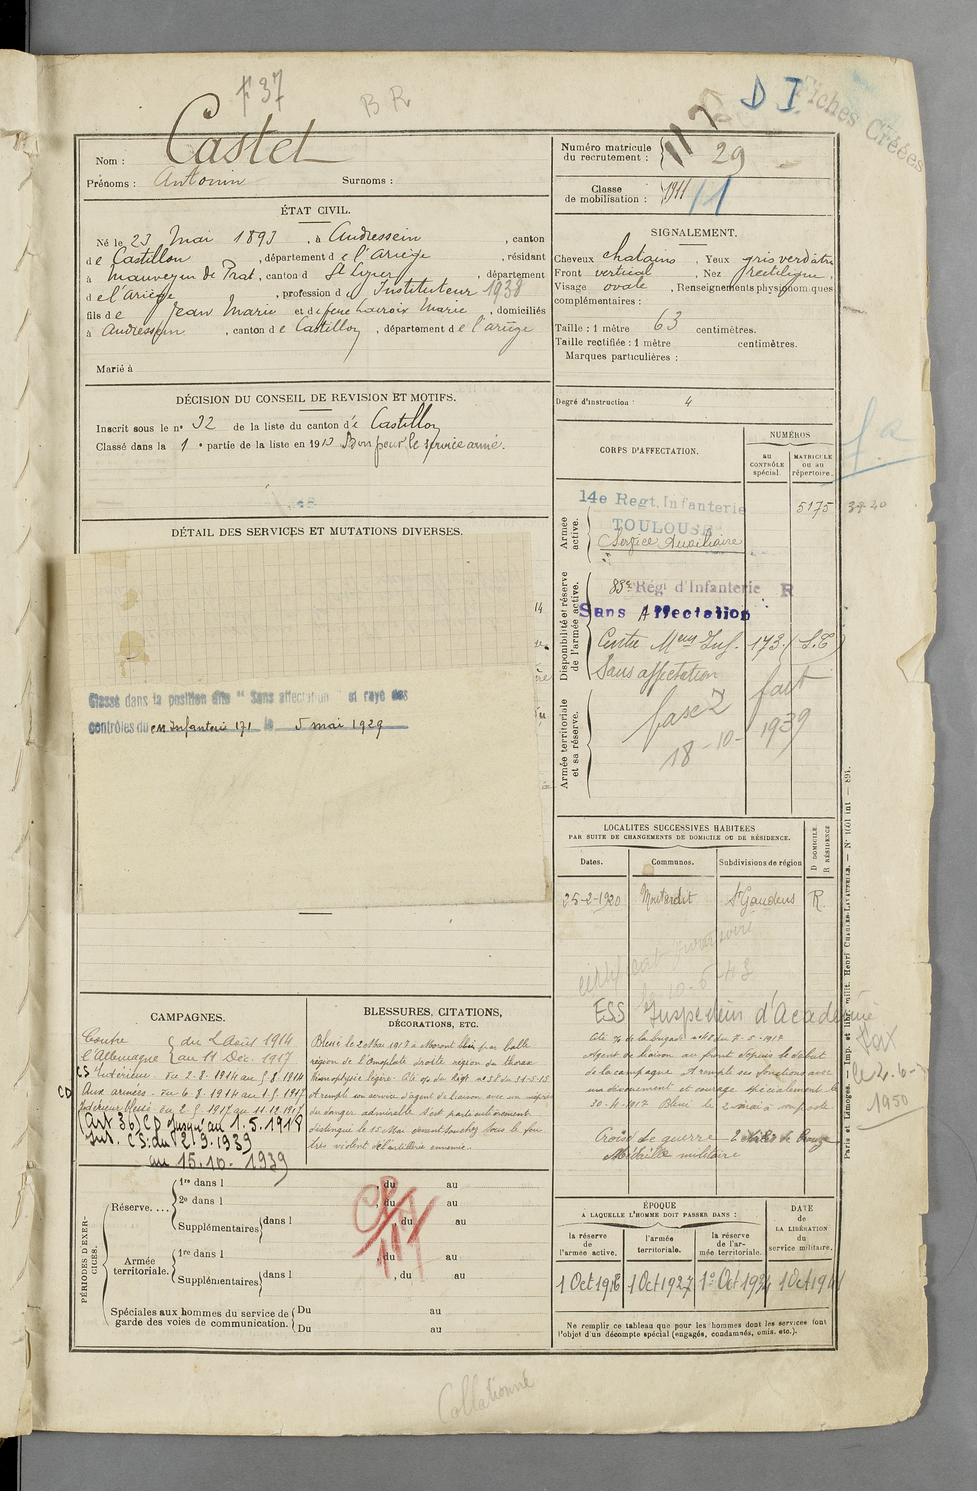 F 37
BR
D I
Fiches Créées
Nom : Castet
Prénoms : Antonin Surnoms :
Numéro matricule du recrutement : 29
Classe de mobilisation : 1911 11
ÉTAT CIVIL.
Né le 23 Mai 1893, à Audressein, canton
de Castillon, département de l'Ariège, résidant
à Mauvezin de Prat, canton d St Lizier, département
de l'Ariège, profession d Instituteur 1938
fils de Jean Marie et de feue Lacroix Marie, domiciliés
à Audressein, canton de Castillon, département de l'ariège
Marié à
SIGNALEMENT.
Cheveux chatains, Yeux gris verdatre
Front vertical, Nez rectiligne,
Visage ovale, Renseignements physionomiques
complémentaires :
Taille : 1 mètre 63 centimètres.
Taille rectifiée : 1 mètre centimètres.
Marques particulières :
Degré d'instruction : 4
DÉCISION DU CONSEIL DE REVISION ET MOTIFS.
Inscrit sous le n° 32 de la liste du canton de Castillon
Classé dans la 1e partie de la liste en 1913 Bon pour le service armé.
CORPS D'AFFECTATION.
NUMÉROS
au CONTRÔLE spécial.
MATRICULE ou au répertoire.
Armée active.
14e Regt. Infanterie
TOULOUSE
5175
Service Auxiliaire
Disponibilité et réserve de l'armée active.
83e Régt d'Infanterie R
Sans Affectation
Centre Meur Inf. 173. (S.E)
Sans affectation
Armée territoriale et sa réserve.
fasc 2 fait
18-10-1939
DÉTAIL DES SERVICES ET MUTATIONS DIVERSES.
Classé dans la position dite "Sans affectation" et rayé des
contrôles du cm Infanterie 171 le 5 mai 1929
LOCALITÉS SUCCESSIVES HABITÉES
PAR SUITE DE CHANGEMENTS DE DOMICILE OU DE RÉSIDENCE.
Dates. Communes. Subdivisions de région D DOMICILE R RÉSIDENCE
25-2-1920 Montardit St Gaudens R.
10-6-43
ESS Inspection d'Académie
Cité à la brigade n° 48 du 7-5-1917
Agent de liaison au front depuis le début
de la campagne A rempli ses fonctions avec
un dévouement et courage spécialement le
30-4-1917 Blessé le 2 mai à son poste
Croix de guerre 2 étoiles de Bronze
Médaille militaire
fait
le 2-6-
1950
CAMPAGNES.
Contre l'Allemagne du 2 Août 1914 au 11 Déc. 1917
CS Intérieur du 2-8-1914 au 5-8-1914
CD Aux armées du 6-8-1914 au 1-5-1917
Intérieur blessé du 2-5-1917 au 11-12-1917
(art 36) CD jusqu'au 1.5.1918
Int. CS: du 2.9.1939
au 15.10.1939
BLESSURES, CITATIONS, DÉCORATIONS, ETC.
Blessé le 2 Mai 1917 à par balle
région de l'omoplate droite région du thorax
Hémoptysie légère. Cité o/ du Regt n° 58 du 31-5-15
A rempli son service d'agent de liaison avec un mépris
du danger admirable S'est particulièrement
distingué le 15 Mai sous le feu
très violent de l'artillerie ennemie.
PÉRIODES D'EXERCICES.
Réserve.... 1re dans l , du au
2e dans l , du au
Supplémentaires dans l , du au
Armée territoriale. 1re dans l , du au
Supplémentaires dans l , du au
Spéciales aux hommes du service de garde des voies de communication. Du au
Du au
ÉPOQUE
A LAQUELLE L'HOMME DOIT PASSER DANS :
la réserve de l'armée active.
l'armée territoriale.
la réserve de l'armée territoriale.
DATE de LA LIBÉRATION du service militaire.
1 Oct 1916 1 Oct 1927 1er Oct 1934 1 Oct 1941
Ne remplir ce tableau que pour les hommes dont les services font
l'objet d'un décompte spécial (engagés, condamnés, omis, etc.).
Collationné